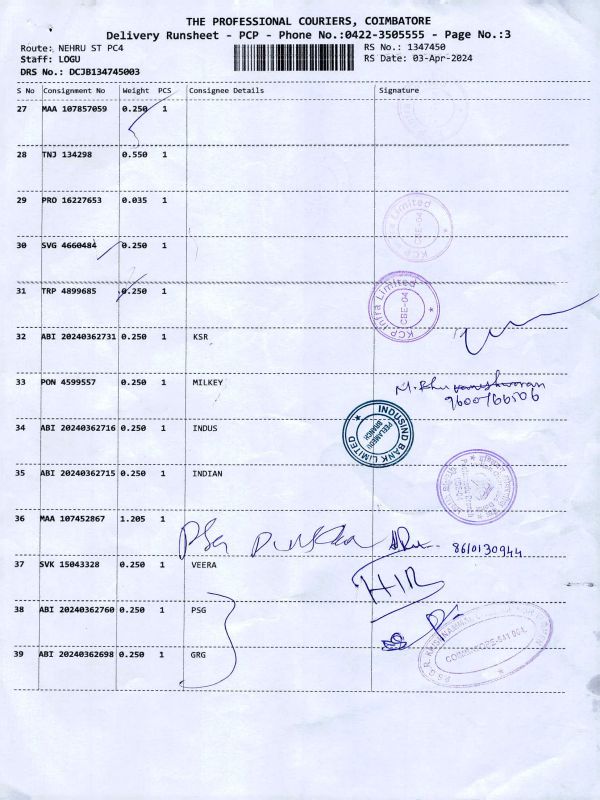 THE PROFESSIONAL COURIERS, COIMBATORE
Delivery Runsheet - PCP - Phone No.:0422-3505555 - Page No.:3
Route: NEHRU ST PC4 RS No.: 1347450
Staff: LOGU RS Date: 03-Apr-2024
DRS No.: DCJB134745003
S No Consignment No Weight PCS Consignee Details Signature
27 MAA 107857059 0.250 1
28 TNJ 134298 0.550 1
29 PRO 16227653 0.035 1
KCP Infra Limited CBE-04
30 SVG 4660484 0.250 1
31 TRP 4899685 0.250 1
KCP Infra Limited CBE-04
32 ABI 20240362731 0.250 1 KSR
33 PON 4599557 0.250 1 MILKEY
M. Bhuvaneshwaran
34 ABI 20240362716 0.250 1 INDUS
INDUSIND BANK LIMITED PEELAMEDU BRANCH
35 ABI 20240362715 0.250 1 INDIAN
36 MAA 107452867 1.205 1
8610130944
37 SVK 15043328 0.250 1 VEERA
38 ABI 20240362760 0.250 1 PSG
39 ABI 20240362698 0.250 1 GRG